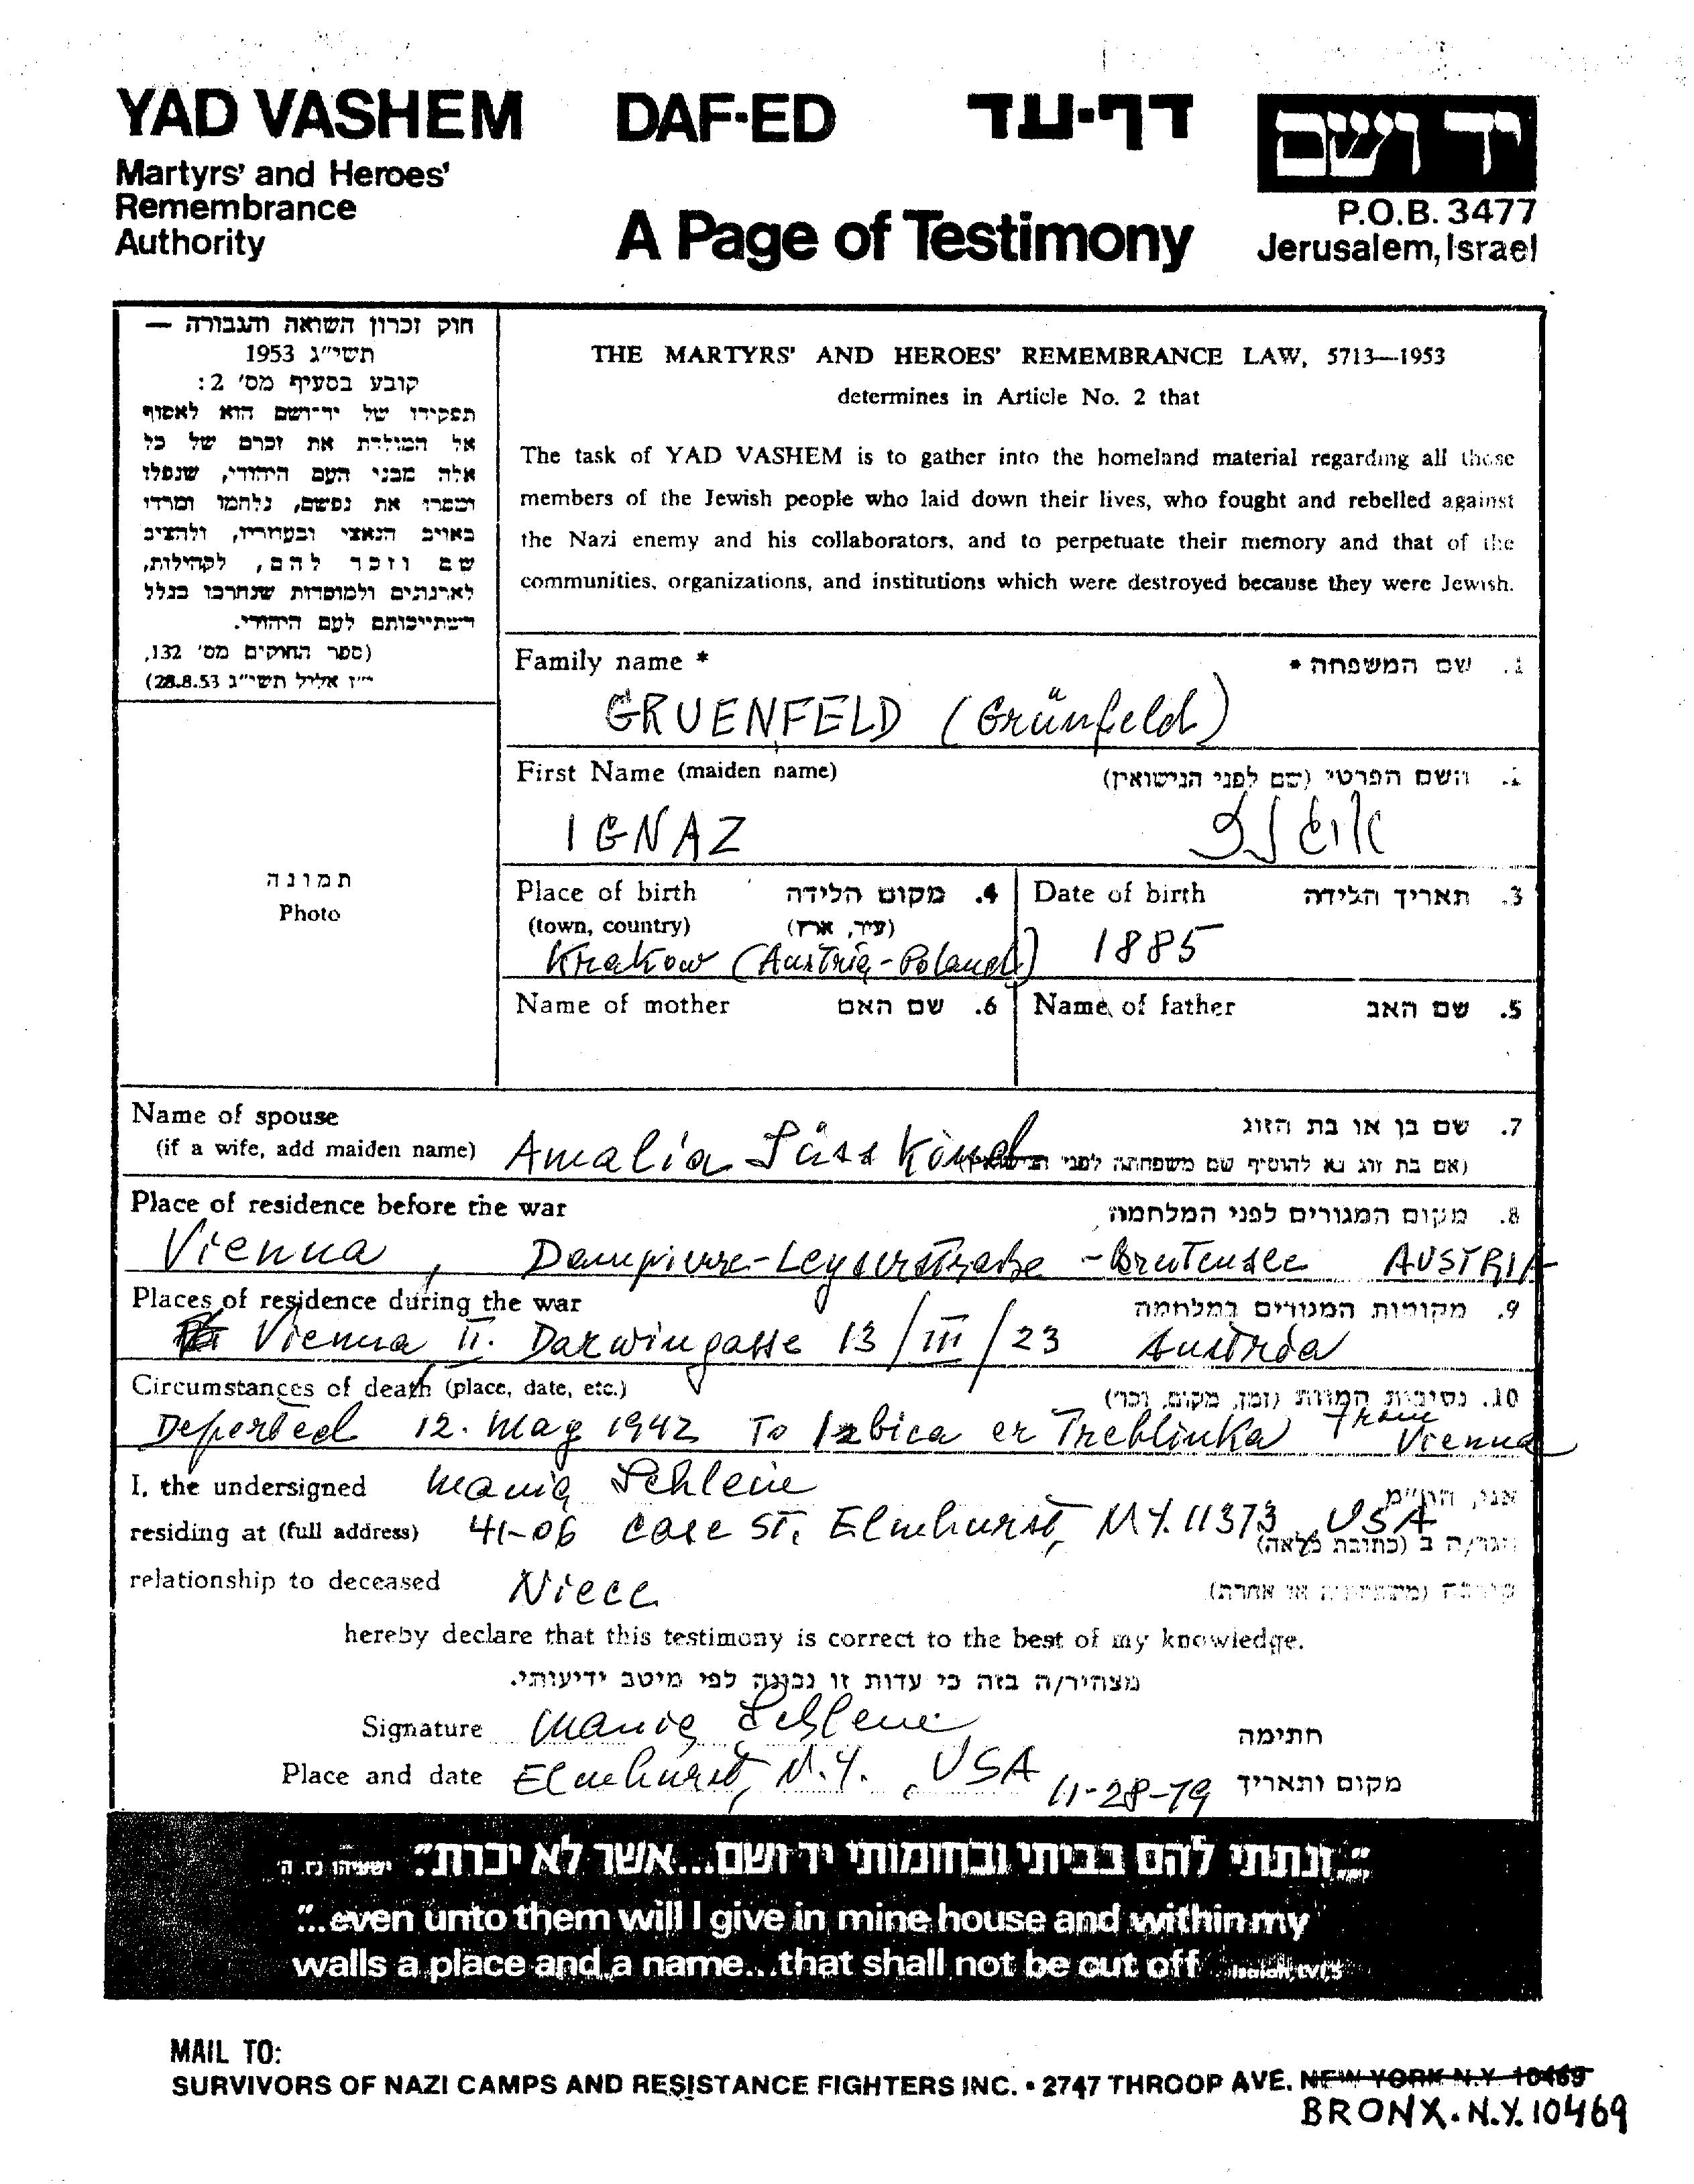 YAD VASHEM DAF-ED דף-עד יד ושם
Martyrs' and Heroes'
Remembrance
Authority
A Page of Testimony
P.O.B. 3477
Jerusalem, Israel
חוק זכרון השואה והגבורה —
תשי"ג 1953
קובע בסעיף מס' 2:
תפקידו של יד־ושם הוא לאסוף
אל המולדת את זכרם של כל
אלה מבני העם היהודי, שנפלו
ומסרו את נפשם, נלחמו ומרדו
באויב הנאצי ובעוזריו, ולהציב
שם וזכר להם, לקהילות,
לארגונים ולמוסדות שנחרבו בגלל
השתייכותם לעם היהודי.
(ספר החוקים מס' 132,
תשי"ג 28.8.53)
THE MARTYRS' AND HEROES' REMEMBRANCE LAW, 5713—1953
determines in Article No. 2 that
The task of YAD VASHEM is to gather into the homeland material regarding all those
members of the Jewish people who laid down their lives, who fought and rebelled against
the Nazi enemy and his collaborators, and to perpetuate their memory and that of the
communities, organizations, and institutions which were destroyed because they were Jewish.
Family name * 1. שם המשפחה *
GRUENFELD (Grünfeld)
First Name (maiden name) השם הפרטי (שם לפני הנישואין)
IGNAZ
תמונה
Photo
Place of birth 4. מקום הלידה
(town, country) (עיר, ארץ)
Krakow (Austria-Poland)
Date of birth 3. תאריך הלידה
1885
Name of mother 6. שם האם
Name of father 5. שם האב
Name of spouse 7. שם בן או בת הזוג
(if a wife, add maiden name) Amalia Süsskind (אם בת זוג נא להוסיף שם משפחתה לפני
Place of residence before the war 8. מקום המגורים לפני המלחמה
Vienna, AUSTRIA
Places of residence during the war 9. מקומות המגורים במלחמה
Vienna II. Darwingasse 13/III/23 Austria
Circumstances of death (place, date, etc.) 10. נסיבות המוות (זמן, מקום, וכו')
Deported 12. May 1942 To Izbica or Treblinka from Vienna
I, the undersigned Mania Schleie אני, הח"מ
residing at (full address) 41-06 Case St, Elmhurst, N.Y. 11373, USA הגר/ה ב (כתובת מלאה)
relationship to deceased Niece קירבה (משפחתית או אחרת)
hereby declare that this testimony is correct to the best of my knowledge.
מצהיר/ה בזה כי עדות זו נכונה לפי מיטב ידיעותי.
Signature Mania חתימה
Place and date Elmhurst, N.Y., USA 11-28-79 מקום ותאריך
"...ונתתי להם בביתי ובחומותי יד ושם...אשר לא יכרת." ישעיהו נו, ה'
"...even unto them will I give in mine house and within my
walls a place and a name...that shall not be cut off" Isaiah, LVI, 5
MAIL TO:
SURVIVORS OF NAZI CAMPS AND RESISTANCE FIGHTERS INC. • 2747 THROOP AVE. NEW YORK N.Y. 10469
BRONX. N.Y. 10469